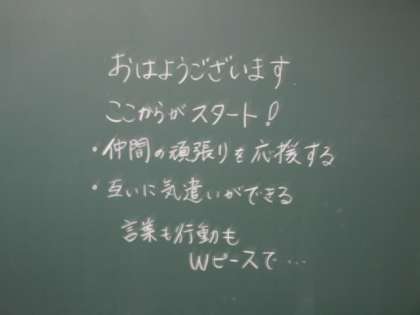 おはようございます
ここからがスタート!
・仲間の頑張りを応援する
・互いに気遣いができる
言葉も行動も
Wピースで…